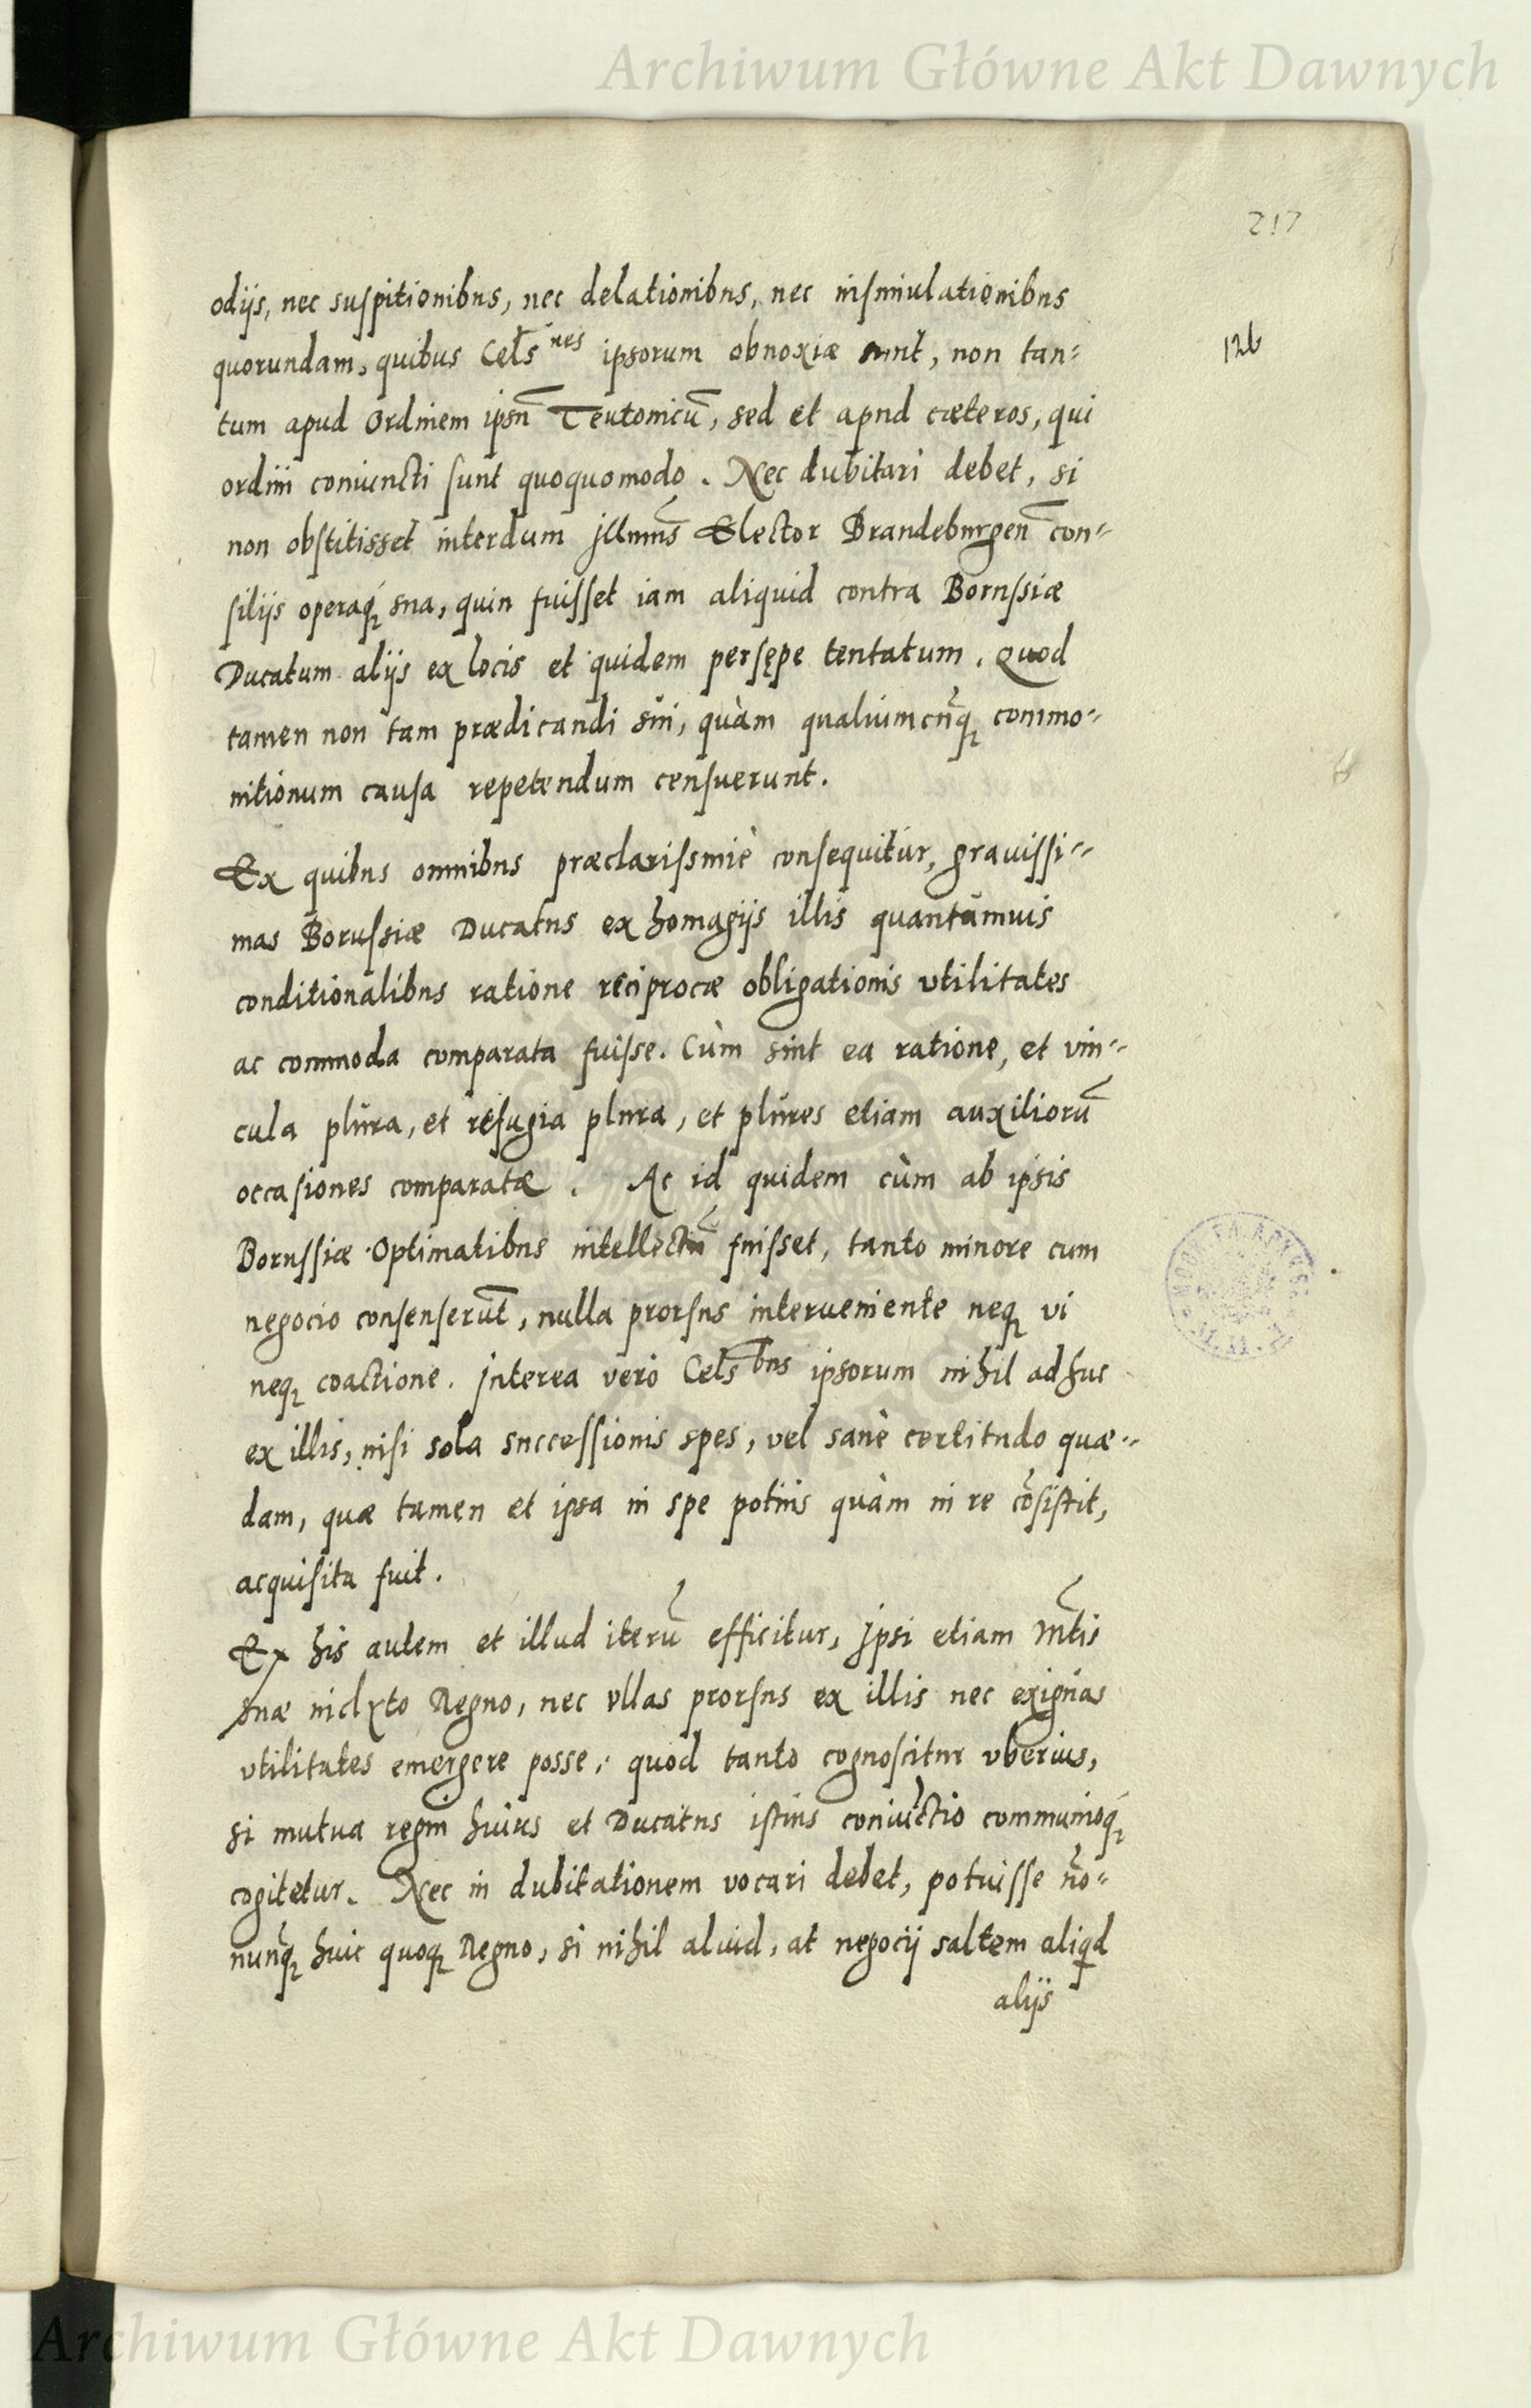 Archiwum Główne Akt Dawnych
217
odijs, nec suspitionibus, nec delationibus, nec insimulationibus
126
quorundam, quibus Cels nes ipsorum obnoxiæ sunt, non tan=
tum apud Ordinem ipsũ Teutonicũ, sed et apud cæteros, qui
ordini coniuncti sunt quoquomodo. Nec dubitari debet, si
non obstitisset interdum Jllmus Elector Brandeburgen̄ con=
silijs operaq́ sua, quin fuisset iam aliquid contra Borussiæ
Ducatum alijs ex locis et quidem persępe tentatum. Quod
tamen non tam prædicandi sui, quàm qualiumcunq̃ commo=
nitionum causa repetendum censuerunt.
Ex quibus omnibus præclarissimè consequitur, grauissi=
mas Borussiæ Ducatus ex homagijs illis quantumuis
conditionalibus ratione reciprocæ obligationis vtilitates
ac commoda comparata fuisse. Cùm sint ea ratione, et vin=
cula plura, et refugia plura, et plures etiam auxiliorũ
occasiones comparatæ. Ac id quidem cùm ab ipsis
Borussiæ Optimatibus intellectũ fuisset, tanto minore cum
negocio consenserũt, nulla prorsus interueniente neq, vi
neq, coactione. Jnterea verò Cels bus ipsorum nihil adhuc
ex illis, nisi sola successionis spes, vel sanè certitudo quæ=
dam, quæ tamen et ipsa in spe potius quàm in re cõsistit,
acquisita fuit.
Ex his autem et illud iterũ efficitur, Jpsi etiam Mtis
suæ inclyto Regno, nec vllas prorsus ex illis nec exiguas
vtilitates emergere posse, quod tanto cognoscitur vberius,
si mutua regni huius et Ducatus istius coniũctio communioq́
cogitetur. Nec in dubitationem vocari debet, potuisse nõ=
nunq̃ huic quoq, Regno, si nihil aliud, at negocij saltem aliqd
alijs
Archiwum Główne Akt Dawnych